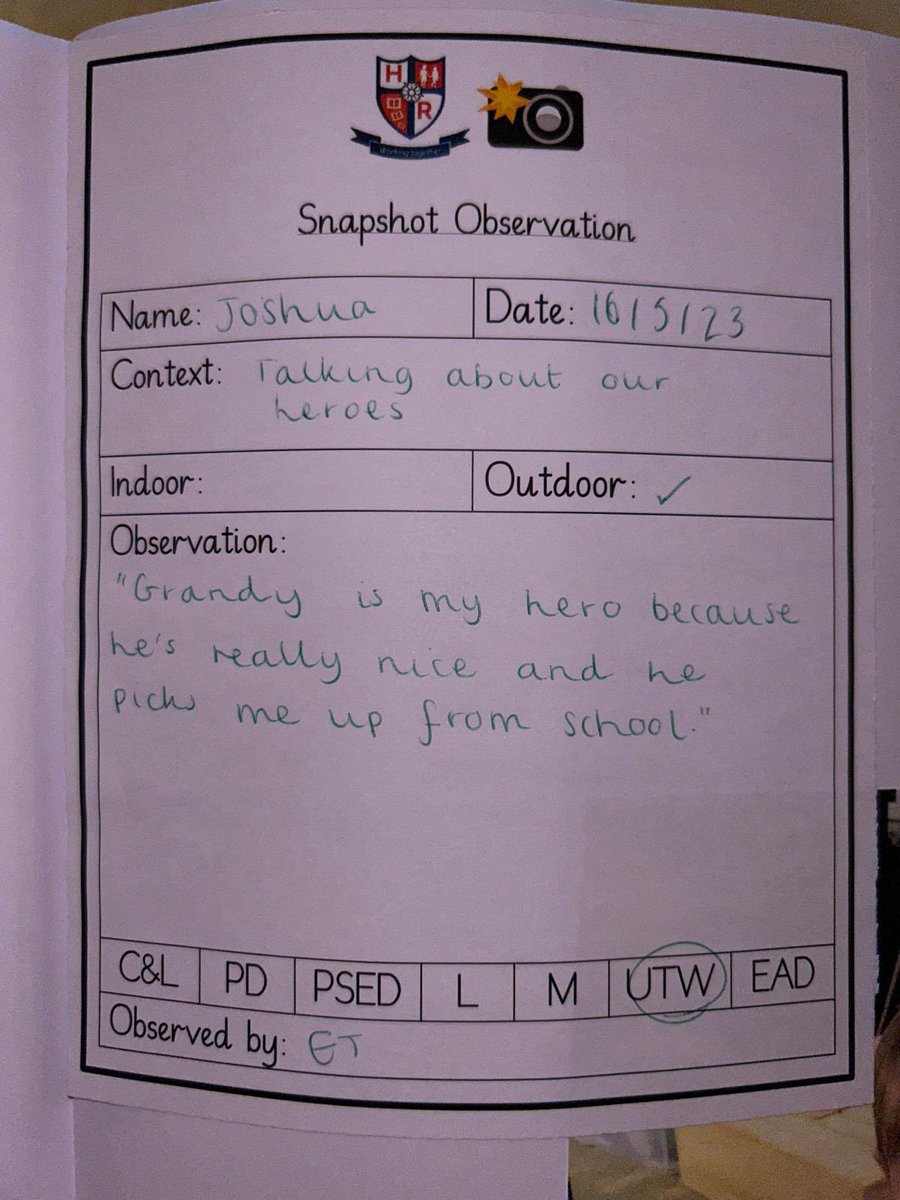 H
R
Working together
Snapshot Observation
Name: Joshua
Date: 16/5/23
Context: Talking about our
heroes
Indoor:
Outdoor: ✓
Observation:
"Grandy is my hero because
he's really nice and he
picks me up from school."
C&L PD PSED L M UTW EAD
Observed by: ET